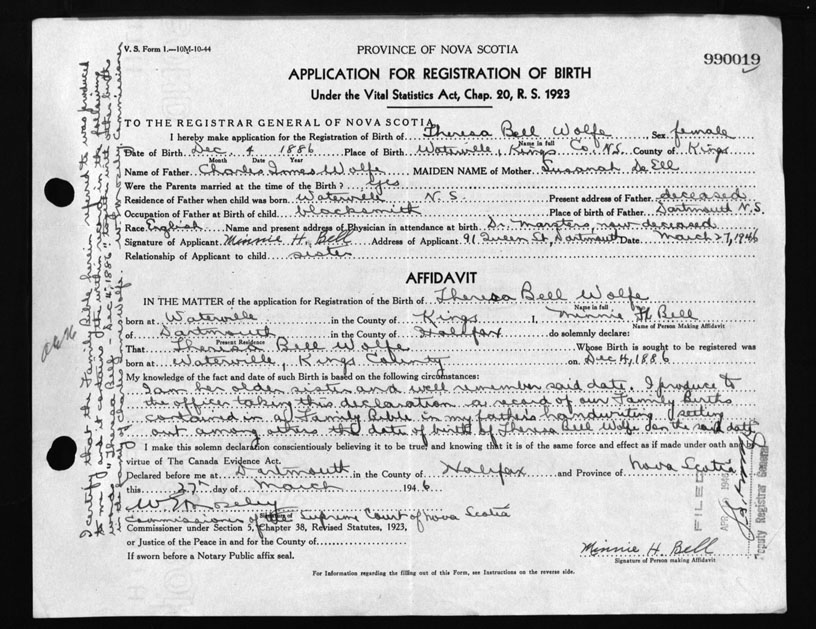 V. S. Form 1.—10M-10-44
PROVINCE OF NOVA SCOTIA
990019
APPLICATION FOR REGISTRATION OF BIRTH
Under the Vital Statistics Act, Chap. 20, R. S. 1923
TO THE REGISTRAR GENERAL OF NOVA SCOTIA
I hereby make application for the Registration of Birth of Theresa Bell Wolfe, Sex female
Name in full
Date of Birth Dec. 4 1886 Place of Birth Waterville, Kings Co. N.S. County of Kings
Month Date Year
Name of Father Charles Inness Wolfe MAIDEN NAME of Mother Susanah
Were the Parents married at the time of the Birth? Yes
Residence of Father when child was born Waterville N. S. Present address of Father deceased
Occupation of Father at Birth of child blacksmith Place of birth of Father Dartmouth N.S.
Race English Name and present address of Physician in attendance at birth Dr. Masters, now deceased
Signature of Applicant Minnie H. Bell Address of Applicant 91 Queen St, Dartmouth Date March 27, 1946
Relationship of Applicant to child sister
AFFIDAVIT
IN THE MATTER of the application for Registration of the Birth of Theresa Bell Wolfe
Name in full
born at Waterville in the County of Kings I, Minnie H. Bell
Name of Person Making Affidavit
of Dartmouth in the County of Halifax do solemnly declare:
Present Residence
That Theresa Bell Wolfe Whose Birth is sought to be registered was
born at Waterville, Kings County on Dec 4, 1886
My knowledge of the fact and date of such Birth is based on the following circumstances:
I am her older sister and well remember said date. I produce to
the officer taking this declaration a record of our Family Births
contained in a Family Bible in my father's handwriting setting
out among others the date of birth of Theresa Bell Wolfe on the said date
I make this solemn declaration conscientiously believing it to be true, and knowing that it is of the same force and effect as if made under oath and by
virtue of The Canada Evidence Act.
Declared before me at Dartmouth in the County of Halifax and Province of Nova Scotia
this 27th day of March 1946
Commissioner of the Supreme Court of Nova Scotia
Commissioner under Section 5, Chapter 38, Revised Statutes, 1923,
or Justice of the Peace in and for the County of
If sworn before a Notary Public affix seal.
Minnie H. Bell
Signature of Person making Affidavit
For Information regarding the filling out of this Form, see Instructions on the reverse side.
I certify that the Family Bible herein referred to was produced
to me and it contains the within record the following
words "Theresa Bell - Dec 4, 1886" together with other births
in the family of Charles Inness Wolfe. Commissioner
FILED
APR 1946
Deputy Registrar General